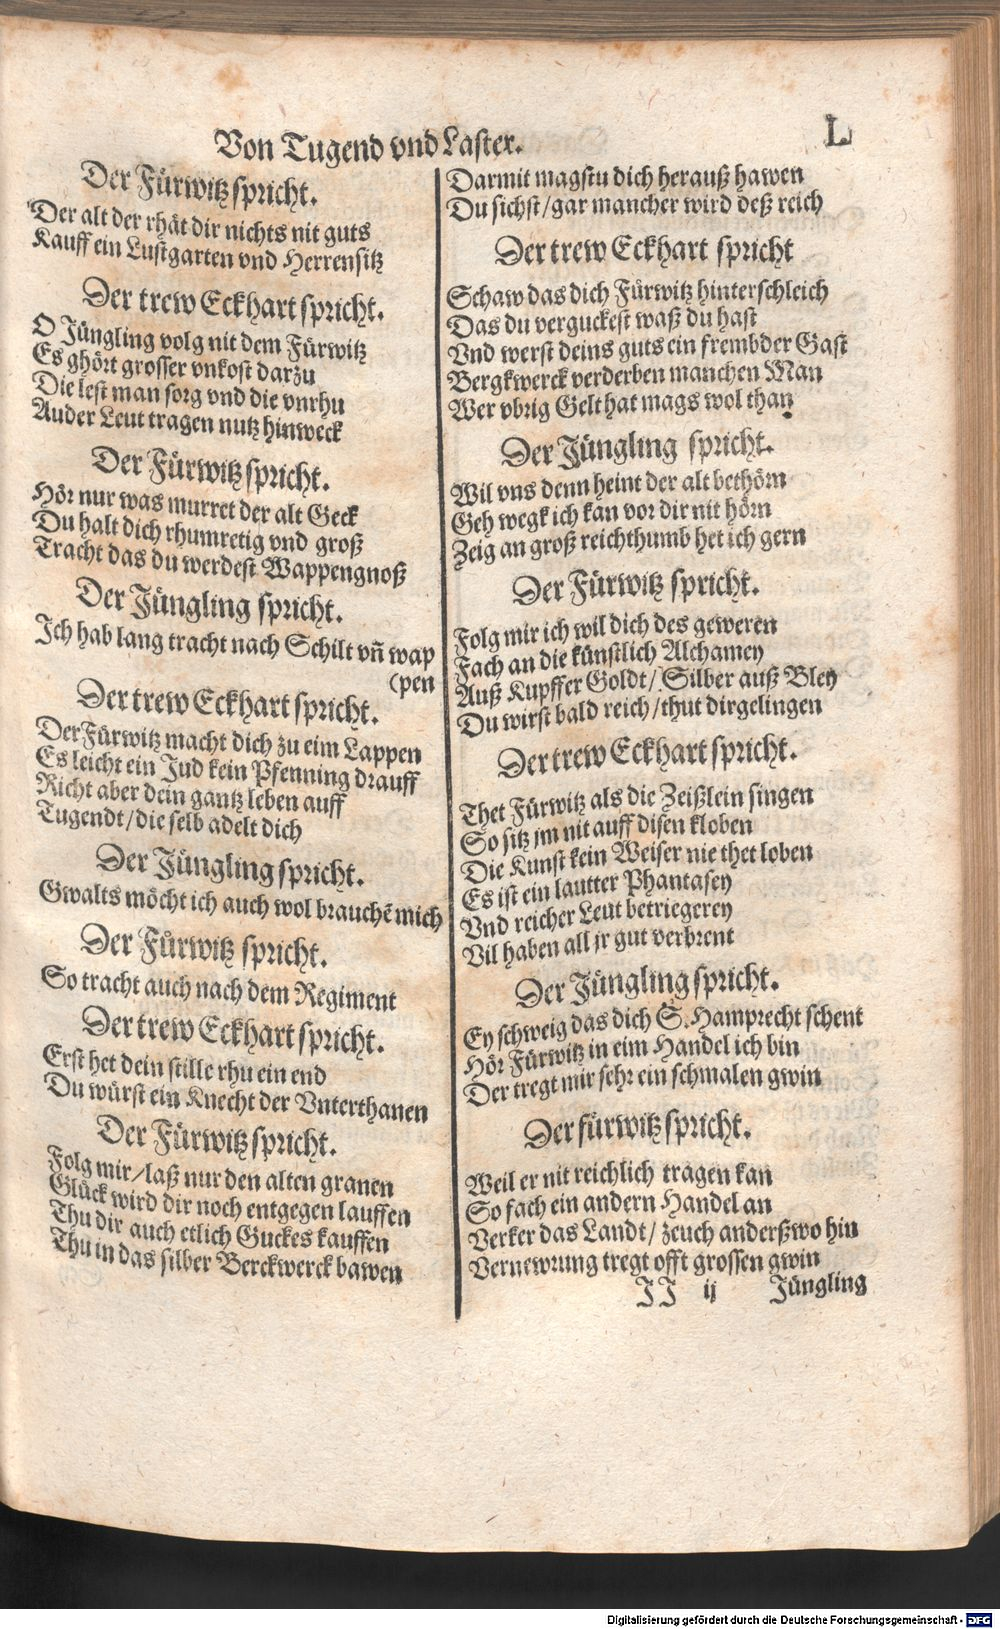 Von Tugend vnd Laster.
L
Der Fürwitz spricht.
Der alt der rhät dir nichts nit guts
Kauff ein Lustgarten vnd Herrensitz
Der trew Eckhart spricht.
O Jüngling volg nit dem Fürwitz
Es ghört grosser vnkost darzu
Die lest man sorg vnd die vnrhu
Ander Leut tragen nutz hinweck
Der Fürwitz spricht.
Hör nur was murret der alt Geck
Du halt dich rhumretig vnd groß
Tracht das du werdest Wappengnoß
Der Jüngling spricht.
Ich hab lang tracht nach Schilt vñ wap
(pen
Der trew Eckhart spricht.
Der Fürwitz macht dich zu eim Lappen
Es leicht ein Jud kein Pfenning drauff
Richt aber dein gantz leben auff
Tugendt/die selb adelt dich
Der Jüngling spricht.
Gwalts möcht ich auch wol brauchē mich
Der Fürwitz spricht.
So tracht auch nach dem Regiment
Der trew Eckhart spricht.
Erst het dein stille rhu ein end
Du würst ein Knecht der Vnterthanen
Der Fürwitz spricht.
Folg mir/laß nur den alten granen
Glück wird dir noch entgegen lauffen
Thu dir auch etlich Guckes kauffen
Thu in das silber Berckwerck bawen
Darmit magstu dich herauß hawen
Du sichst/gar mancher wird deß reich
Der trew Eckhart spricht
Schaw das dich Fürwitz hinterschleich
Das du verguckest waß du hast
Vnd werst deins guts ein frembder Gast
Bergkwerck verderben manchen Man
Wer vbrig Gelt hat mags wol than
Der Jüngling spricht.
Wil vns denn heint der alt bethörn
Geh wegk ich kan vor dir nit hörn
Zeig an groß reichthumb het ich gern
Der Fürwitz spricht.
Folg mir ich wil dich des geweren
Fach an die künstlich Alchamey
Auß Kupffer Goldt/ Silber auß Bley
Du wirst bald reich/thut dir gelingen
Der trew Eckhart spricht.
Thet Fürwitz als die Zeißlein singen
So sitz jm nit auff disen kloben
Die Kunst kein Weiser nie thet loben
Es ist ein lautter Phantasey
Vnd reicher Leut betriegerey
Vil haben all jr gut verbrent
Der Jüngling spricht.
Ey schweig das dich S. Hamprecht schent
Hör Fürwitz in eim Handel ich bin
Der tregt mir sehr ein schmalen gwin
Der fürwitz spricht.
Weil er nit reichlich tragen kan
So fach ein andern Handel an
Verker das Landt/ zeuch anderßwo hin
Vernewrung tregt offt grossen gwin
II ij Jüngling
Digitalisierung gefördert durch die Deutsche Forschungsgemeinschaft - DFG